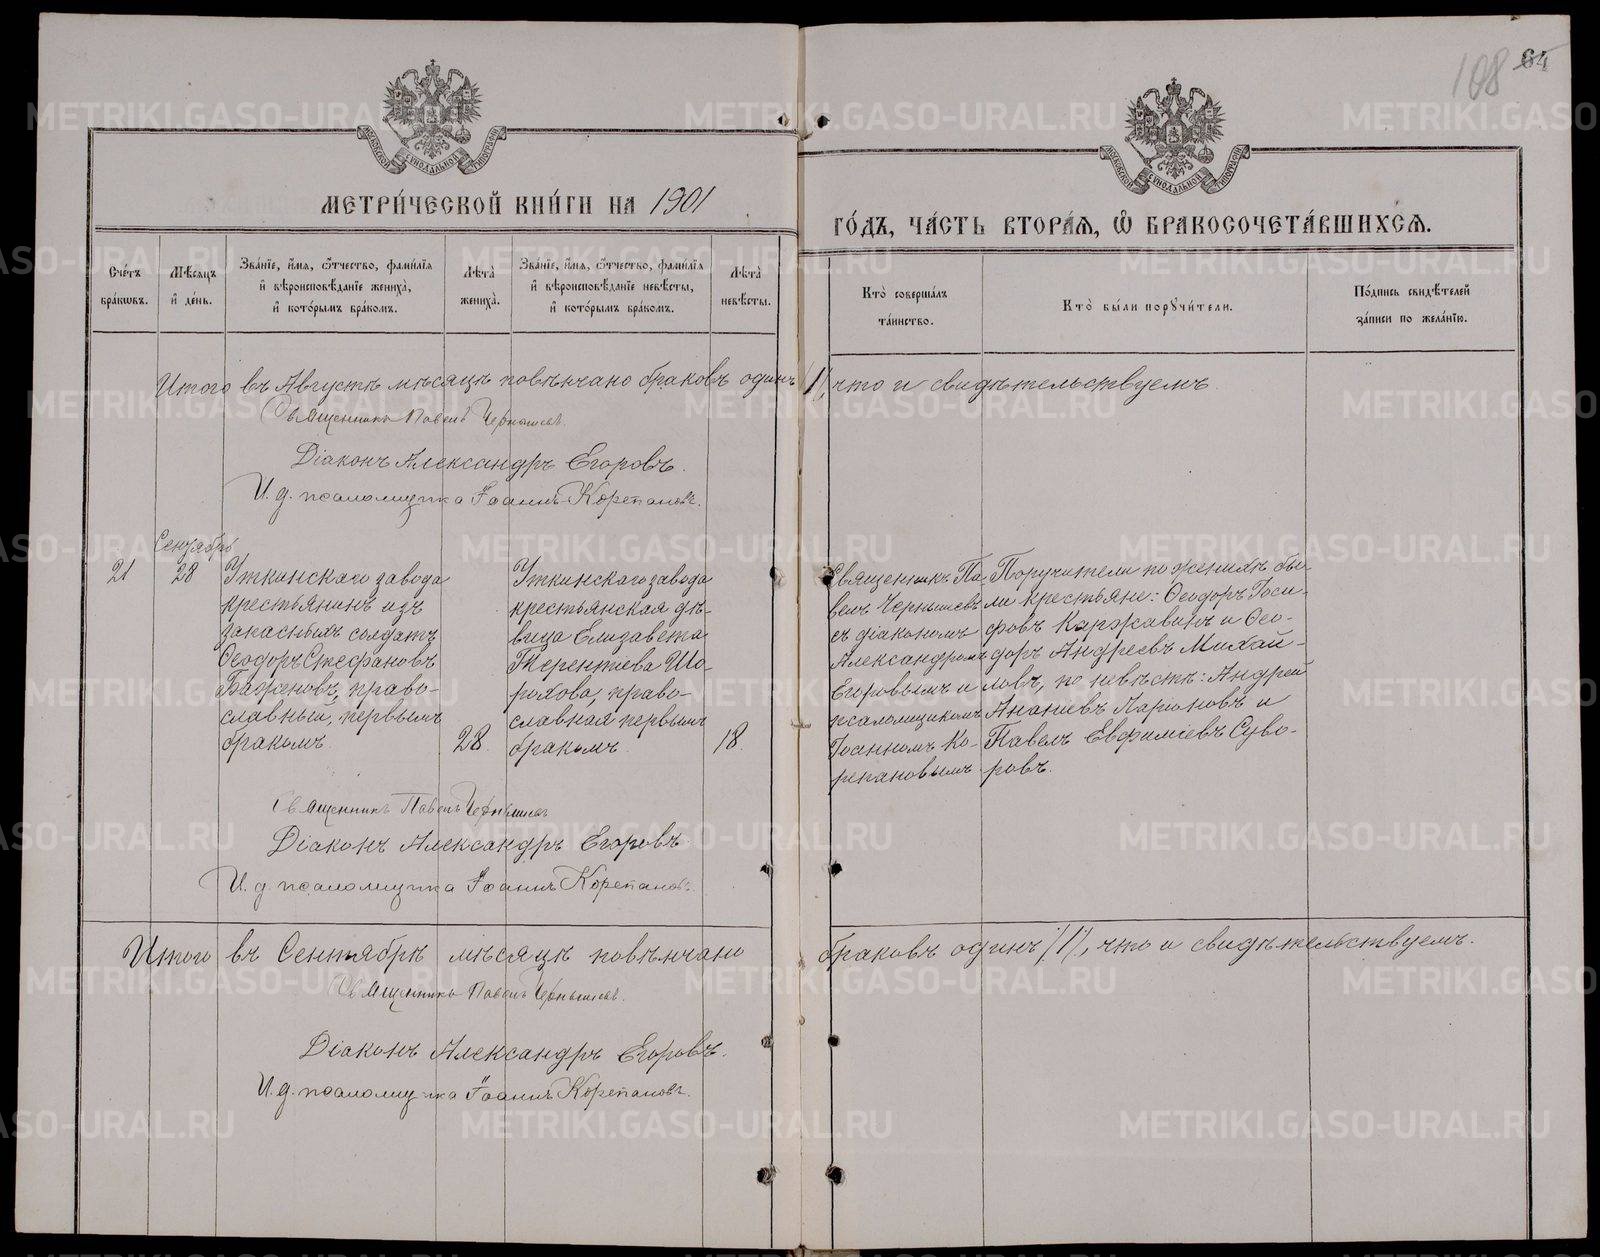 108 64
МОСКОВСКОЙ СѴНОДАЛЬНОЙ ТИПОГРАФІИ
МОСКОВСКОЙ СѴНОДАЛЬНОЙ ТИПОГРАФІИ
МЕТРИ́ЧЕСКОЙ КНИ́ГИ НА 1901
ГО́ДЪ, ЧА́СТЬ ВТОРА́Я, Ѽ БРАКОСОЧЕТА́ВШИХСЯ.
Сче́тъ
бра́кѡвъ.
Мѣ́сяцъ
и҆ де́нь.
Зва́нїе, и҆́мя, ѻ҆́тчество, фами́лїя
и҆ вѣроисповѣ́данїе жениха̀,
и҆ кото́рымъ бра́комъ.
Лѣта̀
жениха̀.
Зва́нїе, и҆́мя, ѻ҆́тчество, фами́лїя
и҆ вѣроисповѣ́данїе невѣ́сты,
и҆ кото́рымъ бра́комъ.
Лѣта̀
невѣ́сты.
Кто̀ соверша́лъ
та́инство.
Кто̀ бы́ли порꙋчи́тели.
По́дпись свидѣ́телей
за́писи по жела́нїю.
Итого въ Августѣ мѣсяцѣ повѣнчано браковъ одинъ /1/, что и свидѣтельствуемъ.
Священникъ Павелъ Чернышевъ.
Діаконъ Александръ Егоровъ.
И. д. псаломщика Іоаннъ Корепановъ.
Сентябрь
21
28
Уткинскаго завода
крестьянинъ изъ
запасныхъ солдатъ
Ѳеодоръ Стефановъ
Баженовъ, право-
славный, первымъ
бракомъ.
28.
Уткинскаго завода
крестьянская дѣ-
вица Елизавета
Терентіева Шо-
рохова, право-
славная первымъ
бракомъ.
18.
Священникъ Па-
велъ Чернышевъ
съ діакономъ
Александромъ
Егоровымъ и
псаломщикомъ
Іоанномъ Ко-
репановымъ
Поручители по женихѣ бы-
ли крестьяне: Ѳеодоръ Іоси-
фовъ Каржавинъ и Ѳео-
доръ Андреевъ Михай-
ловъ, по невѣстѣ: Андрей
Ананіевъ Ларіоновъ и
Павелъ Евфиміевъ Суво-
ровъ.
Священникъ Павелъ Чернышевъ
Діаконъ Александръ Егоровъ.
И. д. псаломщика Іоаннъ Корепановъ.
Итого въ Сентябрѣ мѣсяцѣ повѣнчано браковъ одинъ /1/, что и свидѣтельствуемъ.
Священникъ Павелъ Чернышевъ.
Діаконъ Александръ Егоровъ.
И. д. псаломщика Іоаннъ Корепановъ.
METRIKI.GASO-URAL.RU